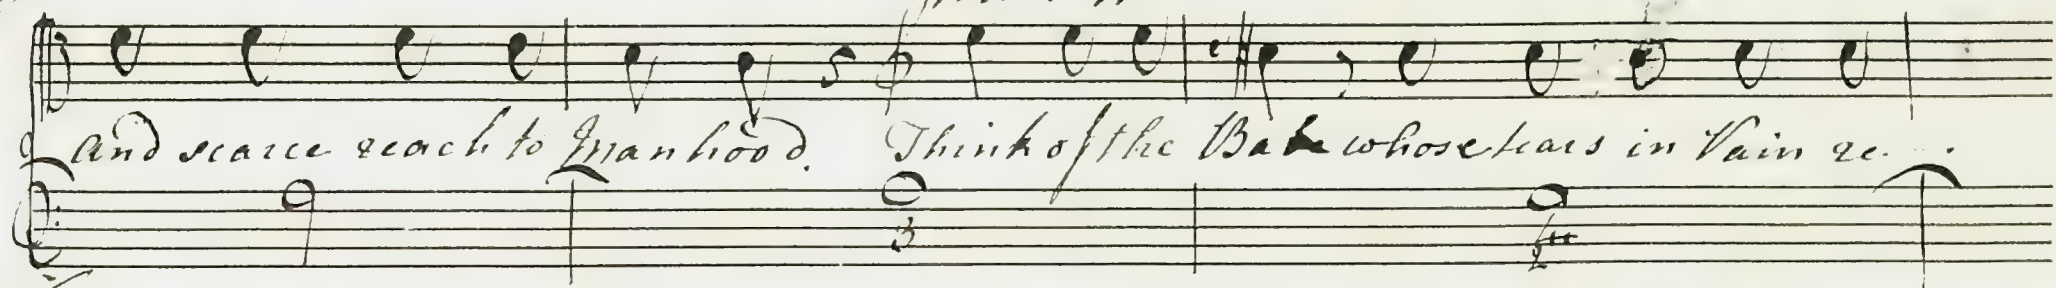 and scarce reach to Manhood. Think of the Babe whose tears in Vain re..
3